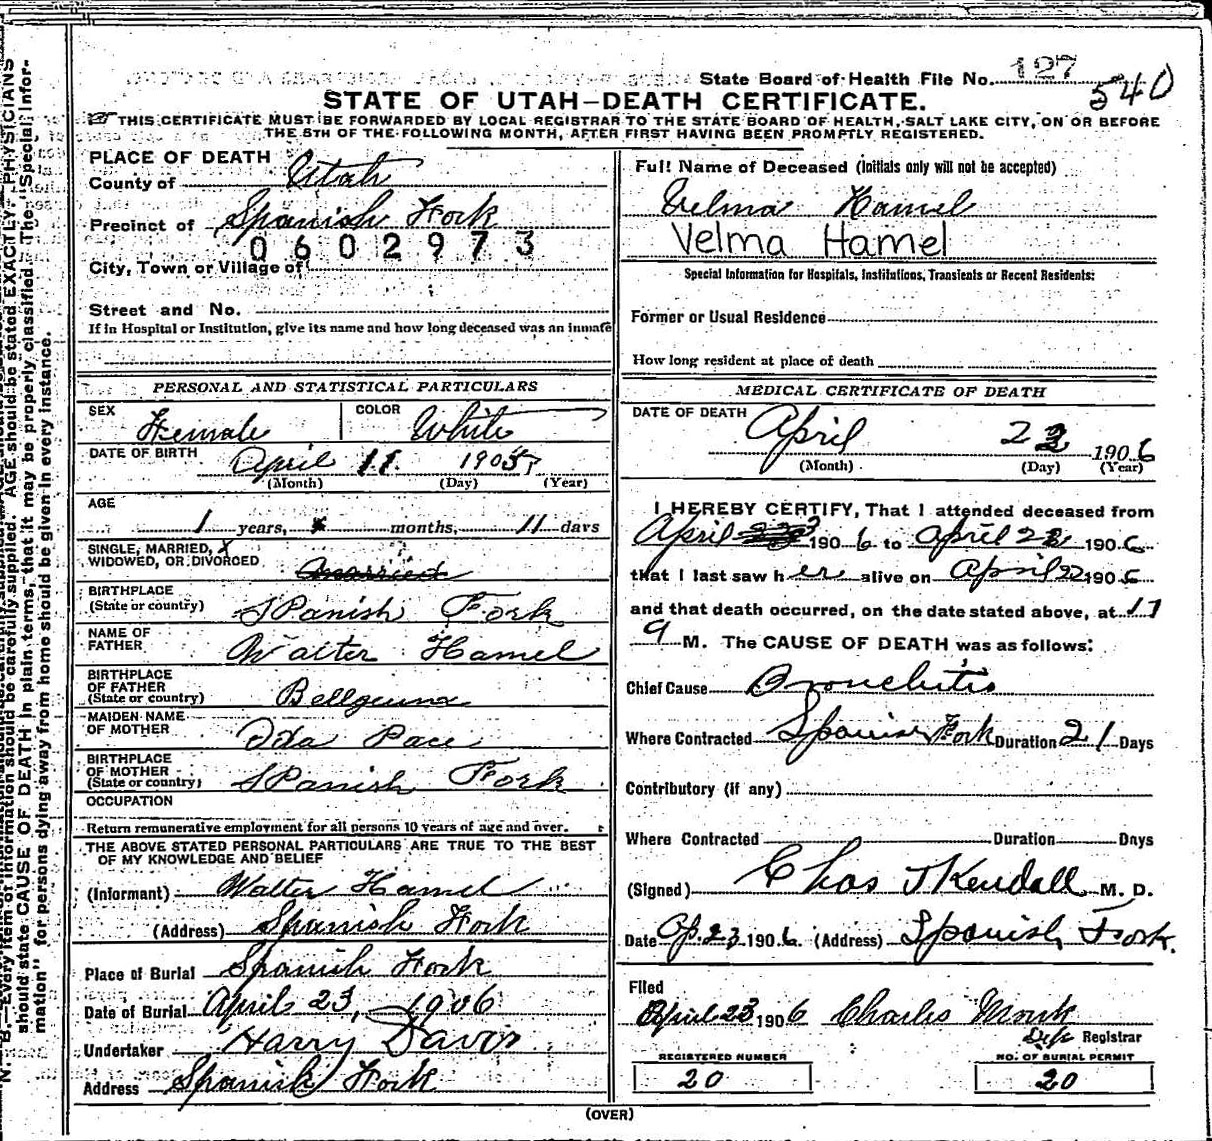 State Board of Health File No. 127
540
STATE OF UTAH—DEATH CERTIFICATE.
THIS CERTIFICATE MUST BE FORWARDED BY LOCAL REGISTRAR TO THE STATE BOARD OF HEALTH, SALT LAKE CITY, ON OR BEFORE
THE 5TH OF THE FOLLOWING MONTH, AFTER FIRST HAVING BEEN PROMPTLY REGISTERED.
PLACE OF DEATH
County of Utah
Precinct of Spanish Fork
0602973
City, Town or Village of
Street and No.
If in Hospital or Institution, give its name and how long deceased was an inmate
PERSONAL AND STATISTICAL PARTICULARS
SEX Female COLOR White
DATE OF BIRTH April 11. 1905
(Month) (Day) (Year)
AGE
1 years, months, 11 days
SINGLE, MARRIED, X
WIDOWED, OR DIVORCED married
BIRTHPLACE
(State or country) Spanish Fork
NAME OF
FATHER Walter Hamel
BIRTHPLACE
OF FATHER
(State or country) Bellgeuna
MAIDEN NAME
OF MOTHER Ida Pace
BIRTHPLACE
OF MOTHER
(State or country) Spanish Fork
OCCUPATION
Return remunerative employment for all persons 10 years of age and over.
THE ABOVE STATED PERSONAL PARTICULARS ARE TRUE TO THE BEST
OF MY KNOWLEDGE AND BELIEF
(Informant) Walter Hamel
(Address) Spanish Fork
Place of Burial Spanish Fork
Date of Burial April 23, 1906
Undertaker Harry Davis
Address Spanish Fork
Full Name of Deceased (Initials only will not be accepted)
Velma Hamel
Velma Hamel
Special Information for Hospitals, Institutions, Transients or Recent Residents:
Former or Usual Residence
How long resident at place of death
MEDICAL CERTIFICATE OF DEATH
DATE OF DEATH April 22 1906
(Month) (Day) (Year)
I HEREBY CERTIFY, That I attended deceased from
April 1906 to April 22 1906
that I last saw her alive on April 22 1906
and that death occurred, on the date stated above, at 11
M. The CAUSE OF DEATH was as follows:
Chief Cause Bronchitis
Where Contracted Spanish Fork Duration 21 Days
Contributory (if any)
Where Contracted Duration Days
(Signed) Chas T Kendall M. D.
Date Ap. 23 1906 (Address) Spanish Fork.
Filed
April 23 1906 Charles Monk
Dep Registrar
REGISTERED NUMBER NO. OF BURIAL PERMIT
20 20
(OVER)
N. B.—Every item of information should be carefully supplied. AGE should be stated EXACTLY. PHYSICIANS
should state CAUSE OF DEATH in plain terms, that it may be properly classified. The "Special Infor-
mation" for persons dying away from home should be given in every instance.